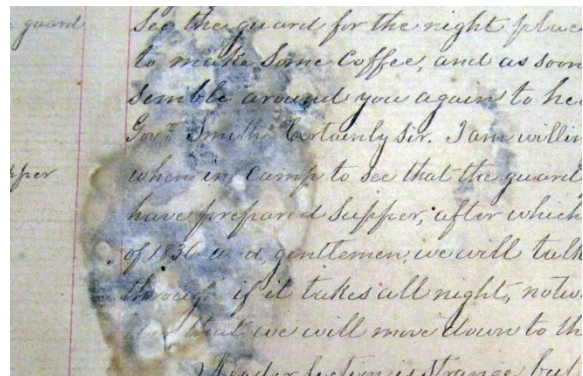 e guard
see the guard for the night plac
to make some Coffee, and as soon
semble around you again to he
Govr. Smith. Certainly Sir. I am willin
pper
when in Camp to see that the guard
have prepared Supper, after which
of 1836 gentlemen, we will talk
through if it takes all night, notw
that we will move down to th
is strange but